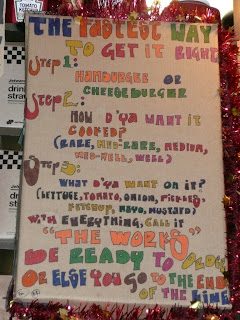 TOMATO
THE FASTEST WAY
TO GET IT RIGHT
STEP 1:
HAMBURGER OR
CHEESEBURGER
STEP 2:
HOW D'YA WANT IT
COOKED?
(RARE, MED-RARE, MEDIUM,
MED-WELL, WELL)
STEP 3:
WHAT D'YA WANT ON IT?
(LETTUCE, TOMATO, ONION, PICKLES,
KETCHUP, MAYO, MUSTARD)
WITH EVERYTHING, CALL IT
"THE WORKS"
BE READY TO ORDER
OR ELSE YOU GO TO THE END
OF THE LINE
drinking
straw